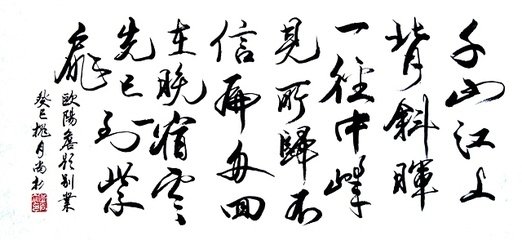 千山江上
背斜暉
一徑中峰
見所歸不
信扁舟回
在晚宿雲
先已到柴
扉
欧陽詹題别業
癸巳桃月尚